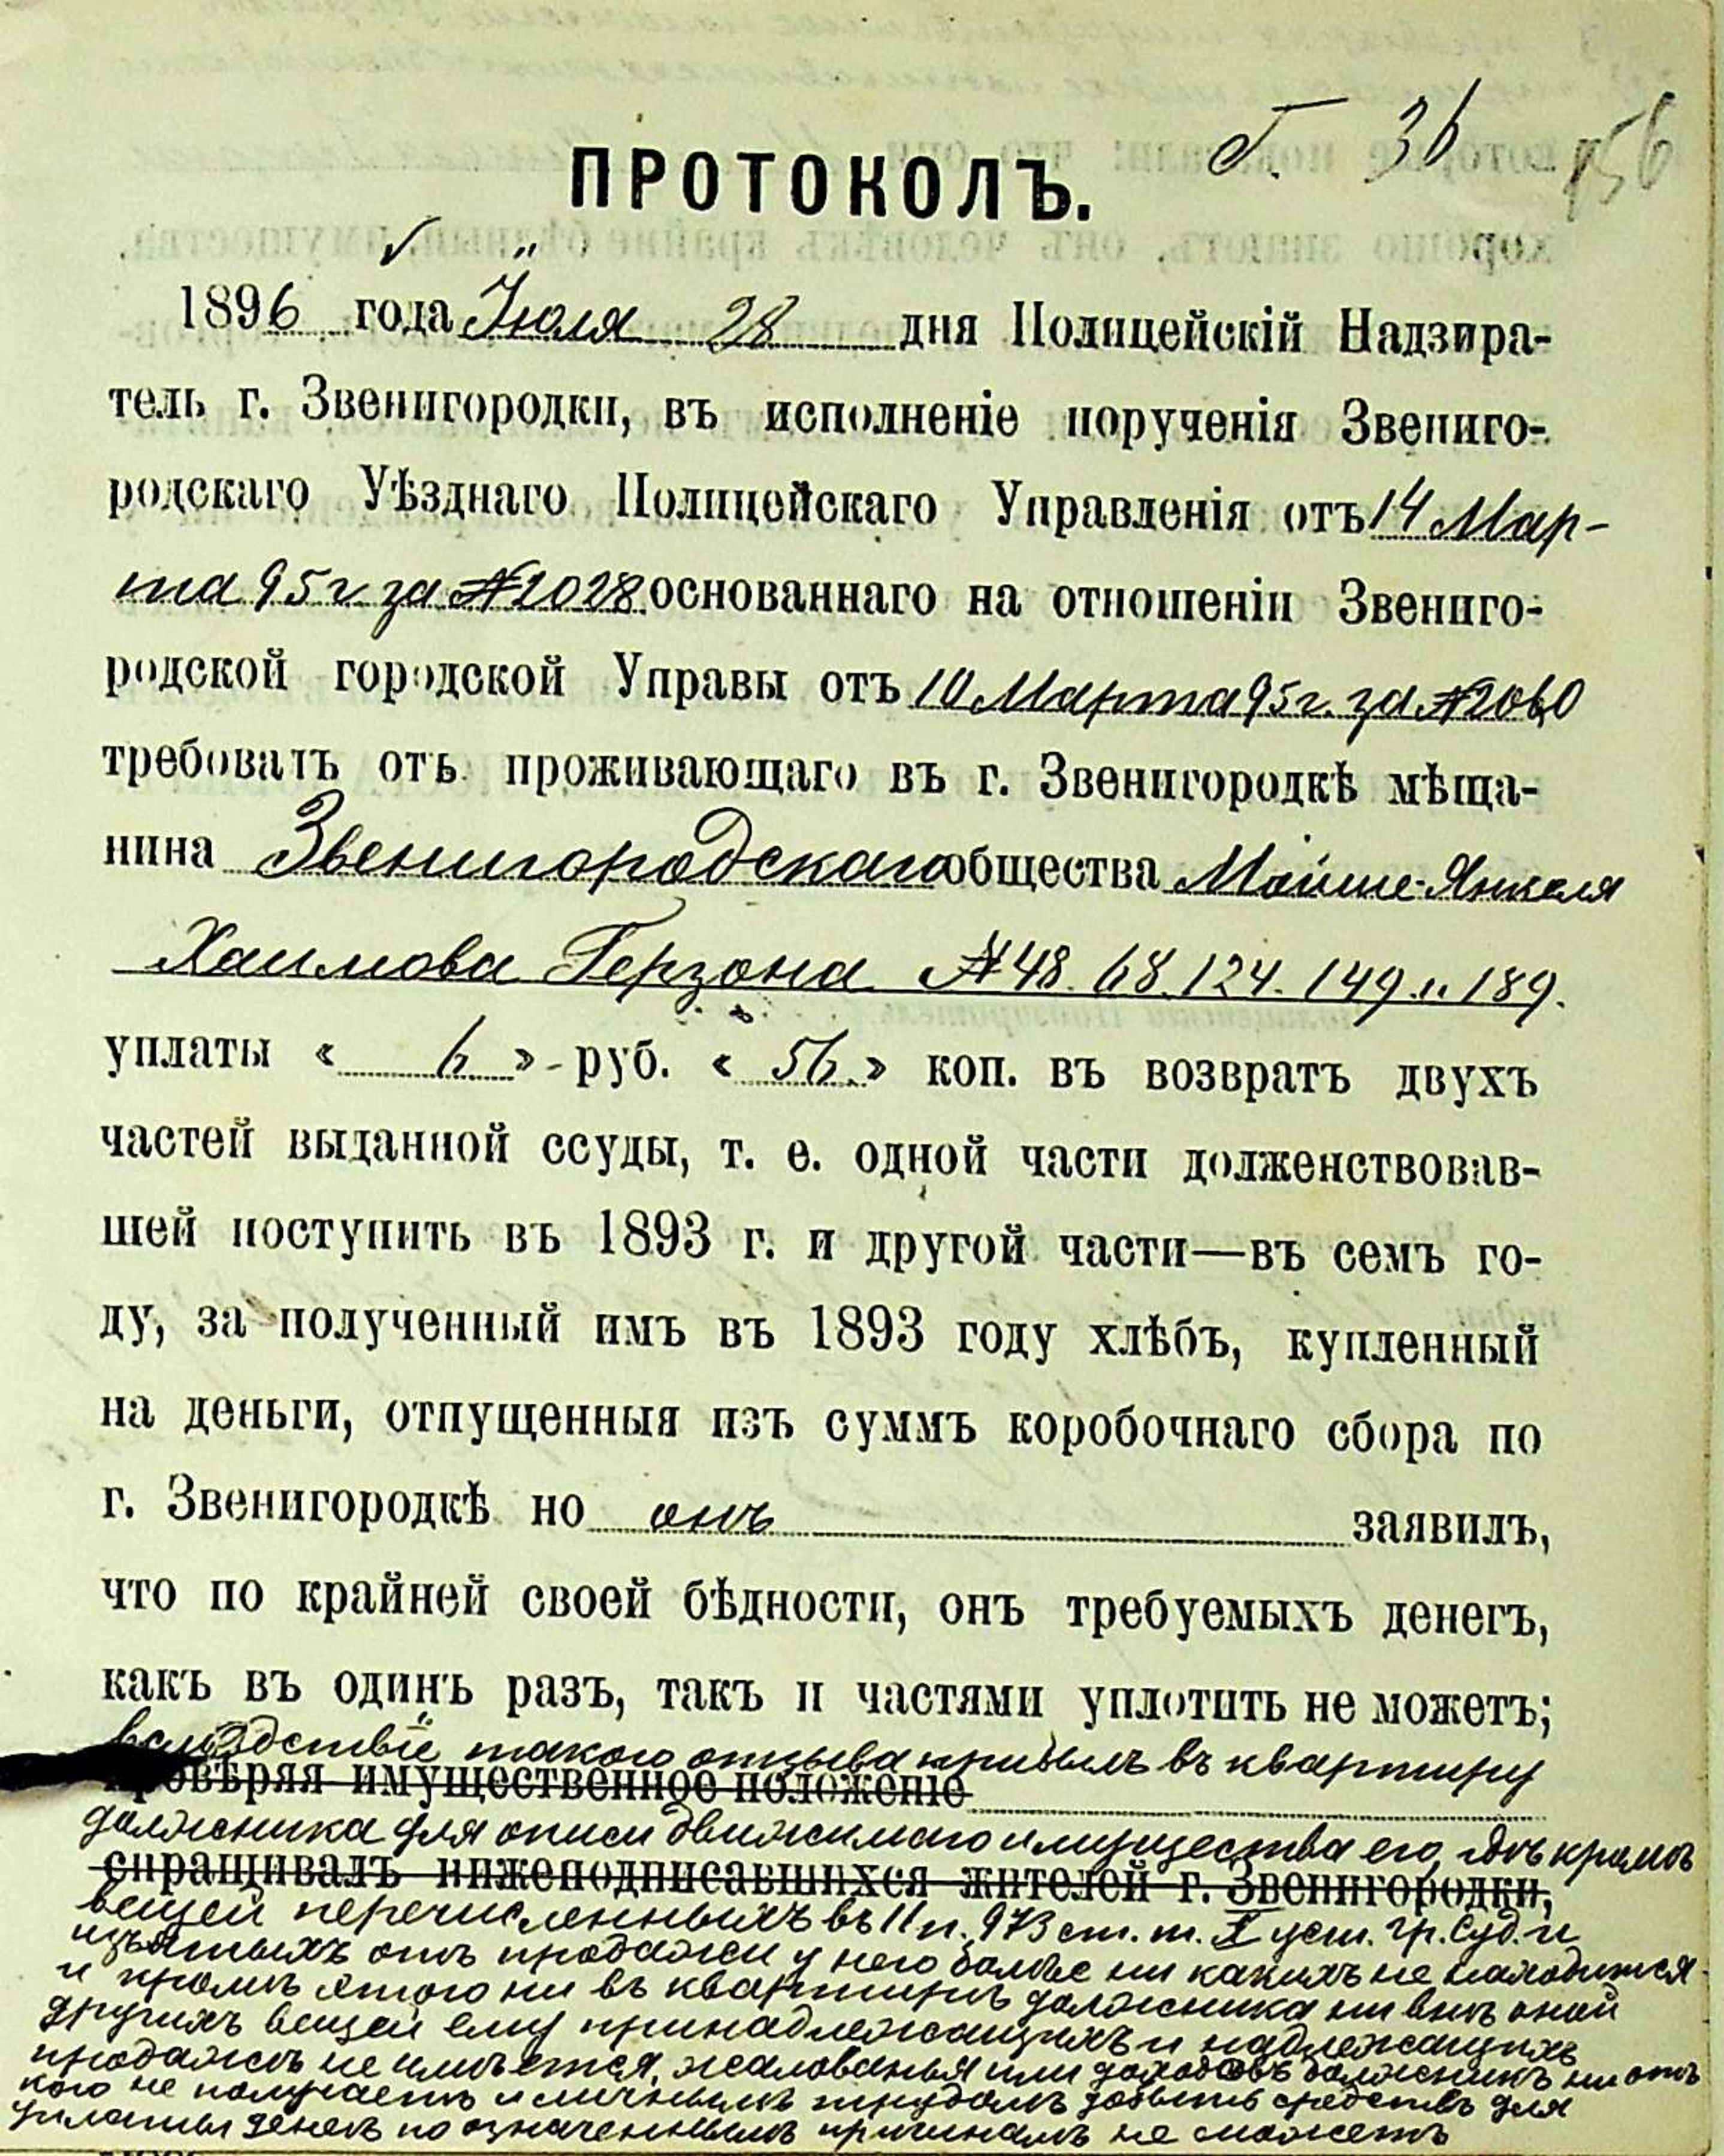 Г. 36 156
ПРОТОКОЛЪ.
1896 года Іюля 28 дня Полицейскій Надзира-
тель г. Звенигородки, въ исполненіе порученія Звениго-
родскаго Уѣзднаго Полицейскаго Управленія отъ 14 Мар-
та 95 г за № 2028 основаннаго на отношеніи Звениго-
родской городской Управы отъ 10 Марта 95 г. за № 2060
требовалъ отъ проживающаго въ г. Звенигородкѣ мѣща-
нина Звенигородскаго общества Мойше-Янкеля
Хаимова Герзона № 48. 68. 124. 149 и 189.
уплаты « 6 » руб. « 56. » коп. въ возвратъ двухъ
частей выданной ссуды, т. е. одной части долженствовав-
шей поступить въ 1893 г. и другой части—въ семъ го-
ду, за полученный имъ въ 1893 году хлѣбъ, купленный
на деньги, отпущенныя изъ суммъ коробочнаго сбора по
г. Звенигородкѣ но онъ заявилъ,
что по крайней своей бѣдности, онъ требуемыхъ денегъ,
какъ въ одинъ разъ, такъ и частями уплотить не можетъ;
вслѣдствіе такого отзыва прибылъ въ квартиру
провѣряя имущественное положеніе
должника для описи движимаго имущества его, гдѣ кромѣ
спрашивалъ нижеподписавшихся жителей г. Звенигородки,
вещей перечисленныхъ въ 11 п. 973 ст. т. X уст. гр. суд. и
изъятыхъ отъ продажи у него болѣе ни какихъ не находится
и кромѣ этого ни въ квартирѣ должника ни внѣ оной
другихъ вещей ему принадлежащихъ и надлежащихъ
продажѣ не имѣется, жалованья или доходовъ должникъ ни отъ
кого не получаетъ и личнымъ трудомъ добыть средствъ для
уплаты денегъ по означеннымъ причинамъ не можетъ